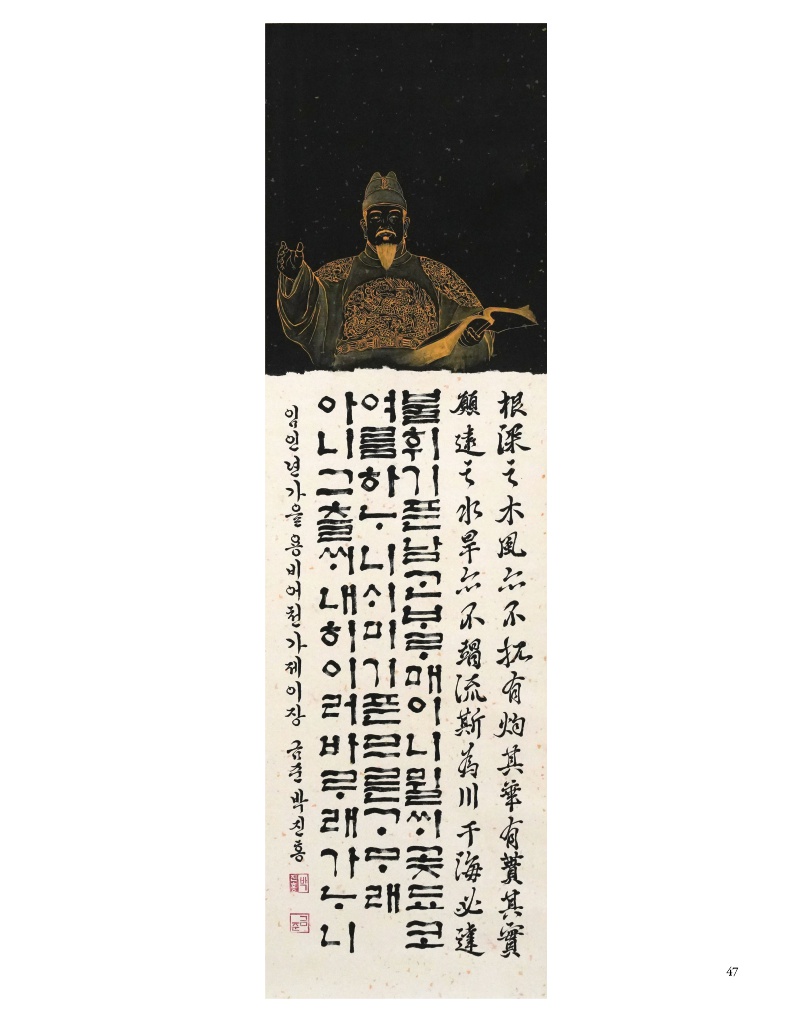 根深之木風亦不扤有灼其華有蕡其實
願遠之水旱亦不竭流斯為川于海必達
불휘기픈남ᄀᆞᆫᄇᆞᄅᆞ매이니뮐ᄊᆡ곶됴코
여름하ᄂᆞ니ᄉᆡ미기픈므른ᄀᆞᄆᆞ래
아니그츨ᄊᆡ내히이러바ᄅᆞ래가ᄂᆞ니
임인년가을 용비어천가제이장 금준 박진홍
박진홍
금준
47